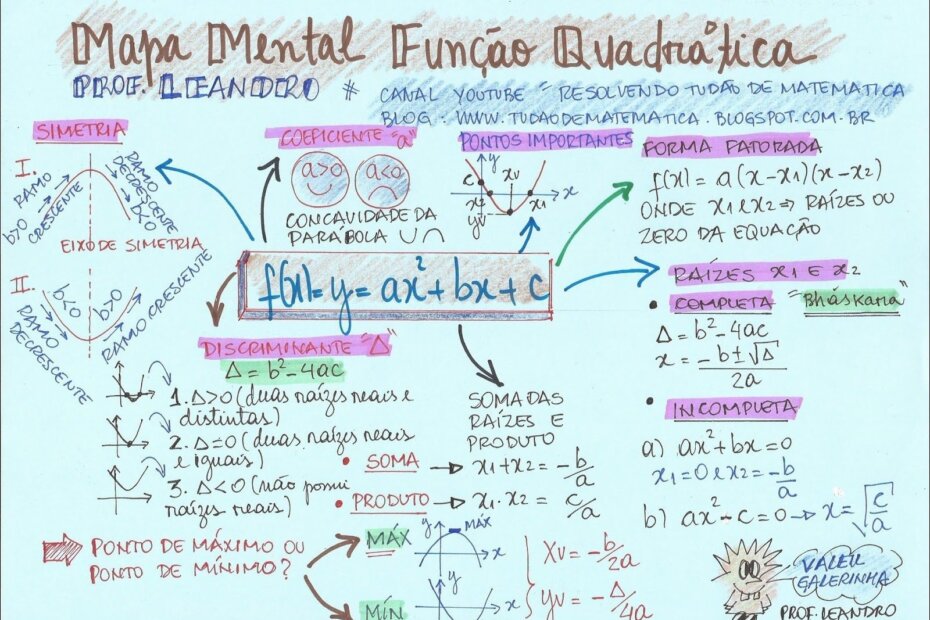 Mapa Mental Função Quadrática
PROF. LEANDRO * CANAL YOUTUBE - RESOLVENDO TUDÃO DE MATEMÁTICA
BLOG: WWW.TUDAODEMATEMATICA.BLOGSPOT.COM.BR
SIMETRIA
I.
b>0 RAMO CRESCENTE
RAMO DECRESCENTE b<0
EIXO DE SIMETRIA
II.
b<0 b>0
RAMO DECRESCENTE
RAMO CRESCENTE
COEFICIENTE "a"
a>0 a<0
CONCAVIDADE DA
PARÁBOLA ∪∩
PONTOS IMPORTANTES
y
xv
c
x
x2
x1
yv
FORMA FATORADA
f(x) = a(x-x1)(x-x2)
ONDE x1 e x2 ⇒ RAÍZES OU
ZERO DA EQUAÇÃO
f(x)=y=ax²+bx+c
RAÍZES x1 E x2
• COMPLETA "Bháskara"
Δ = b²-4ac
x = -b±√Δ
2a
• INCOMPLETA
a) ax²+bx=0
x1=0 e x2=-b/a
b) ax²-c=0 → x=√c/a
DISCRIMINANTE "Δ"
Δ = b²-4ac
1. Δ>0 (duas raízes reais e
distintas)
2. Δ=0 (duas raízes reais
e iguais)
3. Δ<0 (não possui
raízes reais)
SOMA DAS
RAÍZES E
PRODUTO
• SOMA → x1+x2 = -b/a
• PRODUTO → x1.x2 = c/a
PONTO DE MÁXIMO OU
PONTO DE MÍNIMO?
MÁX
y MÁX
x
MÍN
y
x
Xv = -b/2a
yv = -Δ/4a
VALEU
GALERINHA
PROF. LEANDRO